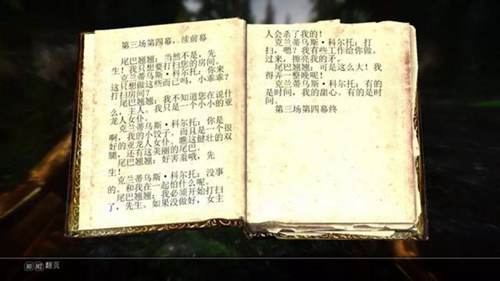 第三场第四幕，续前幕
尾巴翘翘：当然不是，先
生！我只想要打扫您的房间。
克兰蒂乌斯·科尔托：你来
这只想做这些而已吗，小乖乖？
打扫房间？
尾巴翘翘：我不知道您在说什
么，主人。我只是一个小小的亚
龙人女仆。
克兰蒂乌斯·科尔托：你是
啊，我的小饺子。而且是一个很
好的亚龙人女仆。瞧这健壮的双
腿，还有这美丽的尾巴。
尾巴翘翘：好害羞哦，先
生！
克兰蒂乌斯·科尔托：没事
的。和我在一起怕什么呢。
尾巴翘翘：我必须开始打扫
了，先生。如果没做好，女主
人会杀了我的！
克兰蒂乌斯·科尔托：打
扫，嗯？我有些工作给你做。
过来，擦亮我的矛。
尾巴翘翘：可是这么大！我
得弄一整晚呢！
克兰蒂乌斯·科尔托：有的
是时间，我的甜心。有的是时
间。
第三场第四幕终
翻页